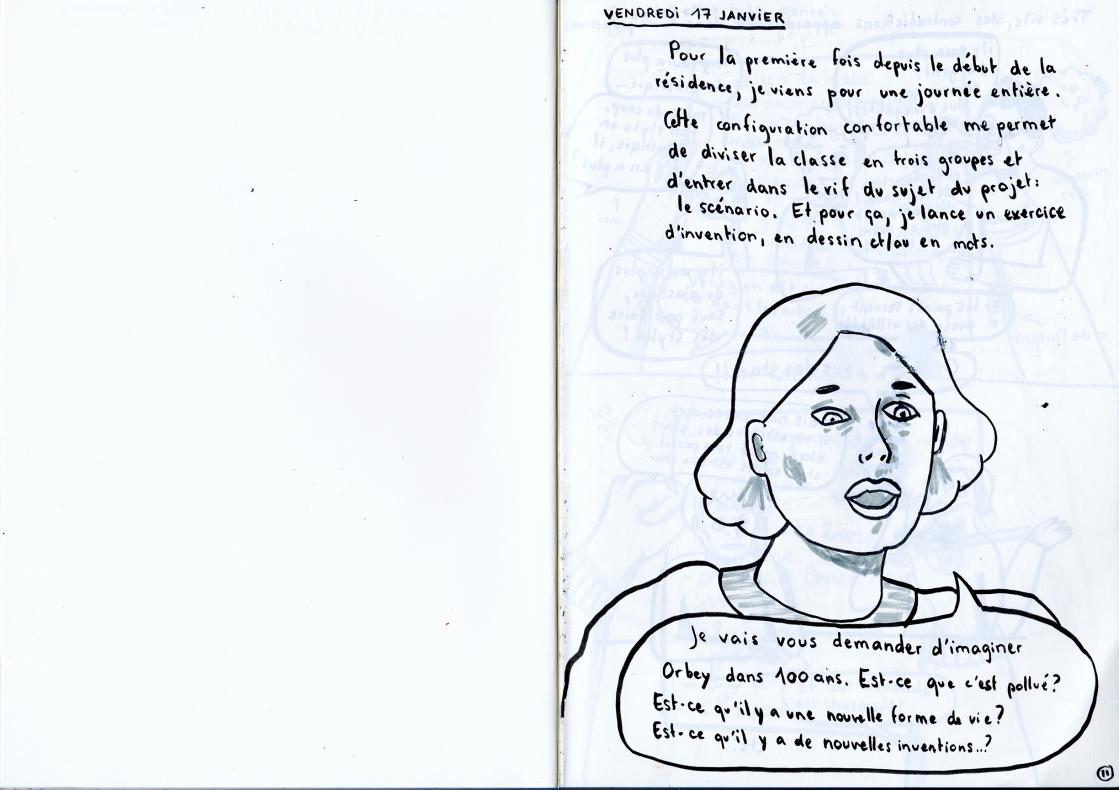 VENDREDI 17 JANVIER
Pour la première fois depuis le début de la
résidence, je viens pour une journée entière.
Cette configuration confortable me permet
de diviser la classe en trois groupes et
d'entrer dans le vif du sujet du projet:
le scénario. Et pour ça, je lance un exercice
d'invention, en dessin et/ou en mots.
Je vais vous demander d'imaginer
Orbey dans 100 ans. Est-ce que c'est pollué?
Est-ce qu'il y a une nouvelle forme de vie?
Est-ce qu'il y a de nouvelles inventions...?
11